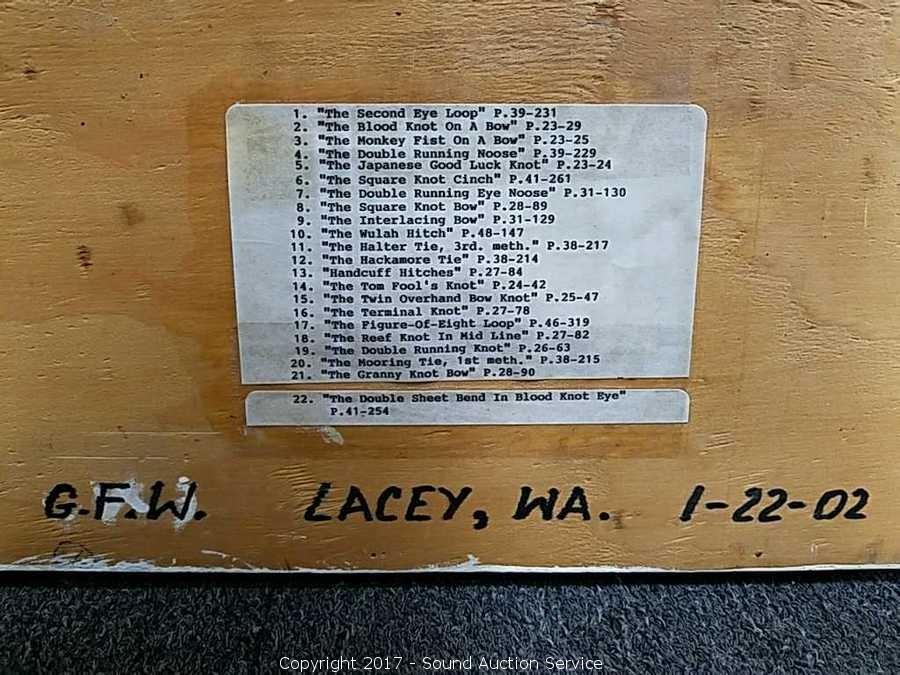 1. "The Second Eye Loop" P.39-231
2. "The Blood Knot On A Bow" P.23-29
3. "The Monkey Fist On A Bow" P.23-25
4. "The Double Running Noose" P.39-229
5. "The Japanese Good Luck Knot" P.23-24
6. "The Square Knot Cinch" P.41-261
7. "The Double Running Eye Noose" P.31-130
8. "The Square Knot Bow" P.28-89
9. "The Interlacing Bow" P.31-129
10. "The Wulah Hitch" P.48-147
11. "The Halter Tie, 3rd. meth." P.38-217
12. "The Hackamore Tie" P.38-214
13. "Handcuff Hitches" P.27-84
14. "The Tom Fool's Knot" P.24-42
15. "The Twin Overhand Bow Knot" P.25-47
16. "The Terminal Knot" P.27-78
17. "The Figure-Of-Eight Loop" P.46-319
18. "The Reef Knot In Mid Line" P.27-82
19. "The Double Running Knot" P.26-63
20. "The Mooring Tie, 1st meth." P.38-215
21. "The Granny Knot Bow" P.28-90
22. "The Double Sheet Bend In Blood Knot Eye"
P.41-254
G.F.W. LACEY, WA. 1-22-02
Copyright 2017 - Sound Auction Service